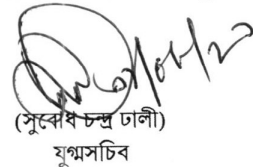 (সুবোধ চন্দ্র ঢালী)
যুগ্মসচিব